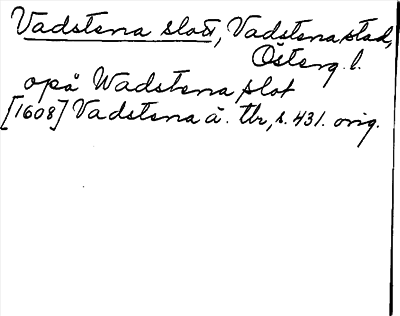 Vadstena slott, Vadstena stad,
Österg. l.
opå Wadstena slot
[1608] Vadstena ä. tbr, s. 431. orig.